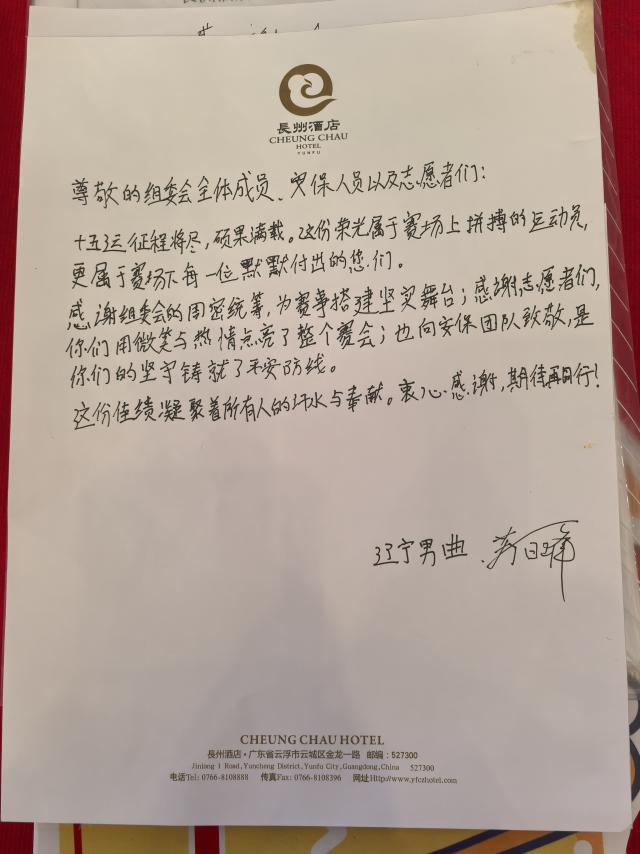 長州酒店
CHEUNG CHAU
HOTEL
YUNFU
尊敬的组委会全体成员、安保人员以及志愿者们:
十五运征程将尽,硕果满载。这份荣光属于赛场上拼搏的运动员,
更属于赛场下每一位默默付出的您们。
感谢组委会的周密统筹,为赛事搭建坚实舞台;感谢志愿者们,
你们用微笑与热情点亮了整个赛会;也向安保团队致敬,是
你们的坚守铸就了平安防线。
这份佳绩凝聚着所有人的汗水与奉献。衷心感谢,期待再同行!
辽宁男曲
CHEUNG CHAU HOTEL
長州酒店·广东省云浮市云城区金龙一路 邮编:527300
Jinlong 1 Road,Yuncheng District,Yunfu City,Guangdong,China 527300
电话Tel: 0766-8108888 传真Fax: 0766-8108396 网址Http://www.yfczhotel.com